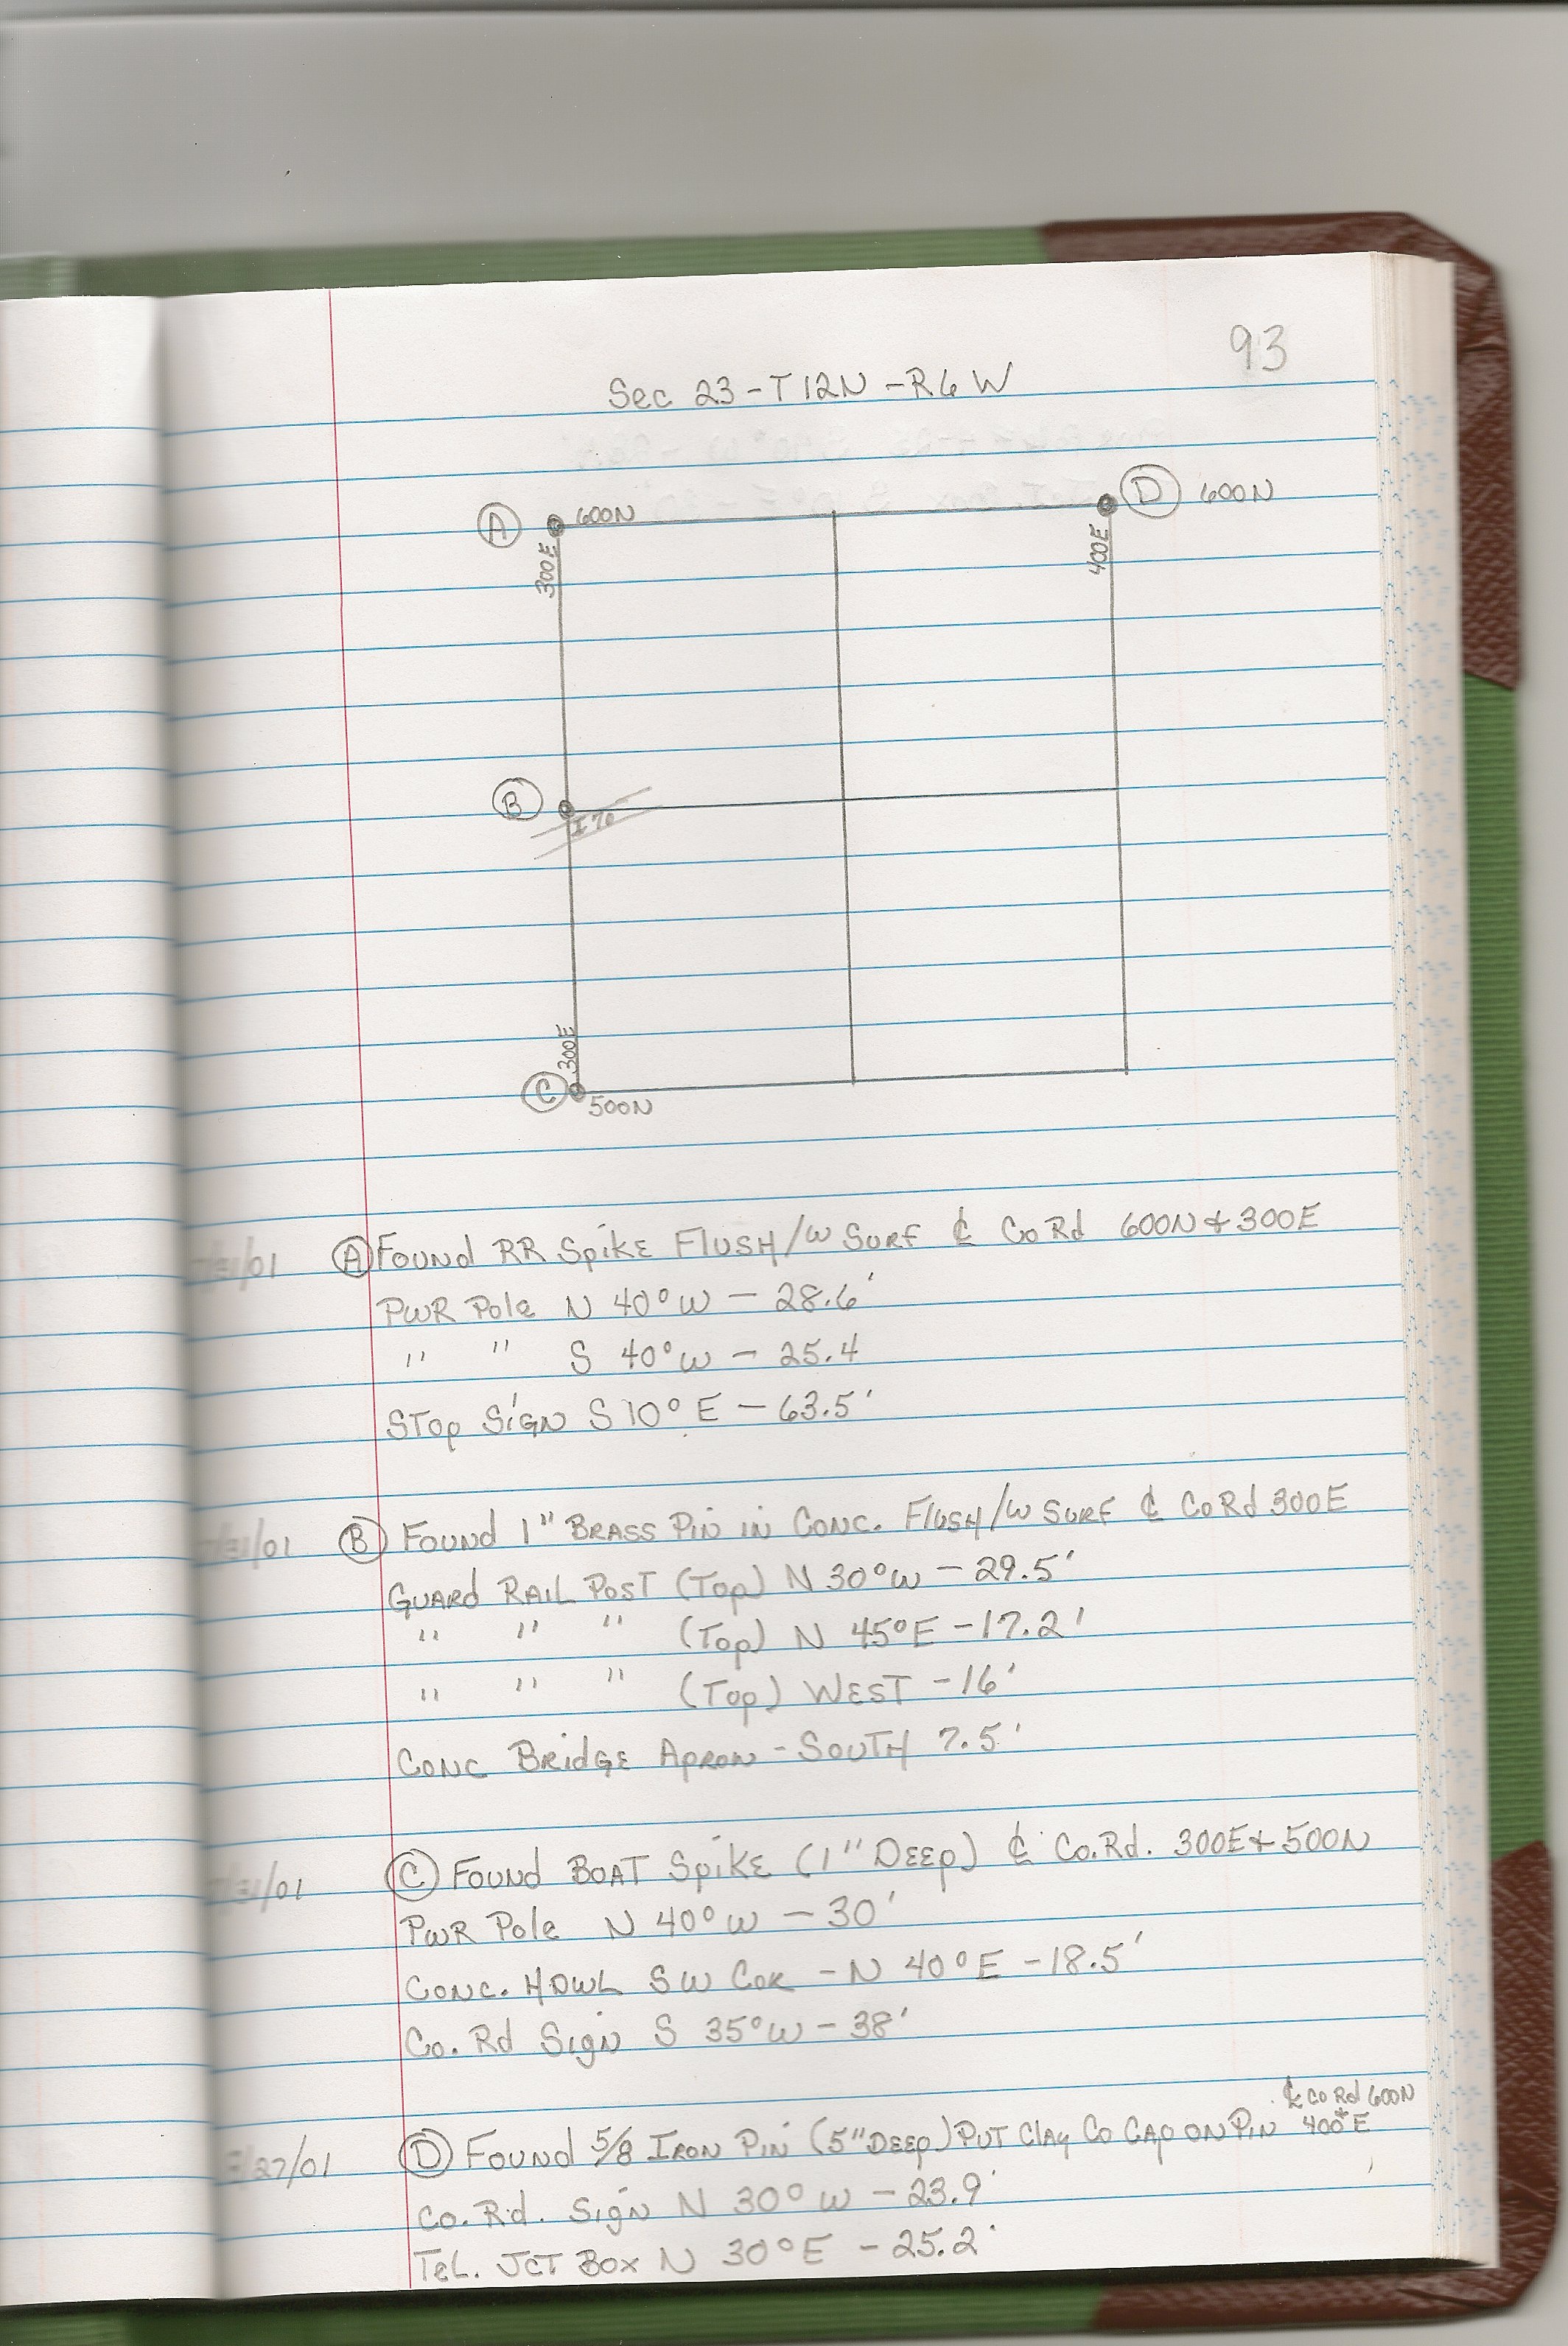 93
Sec 23-T12N-R6W
(A) 600N (D) 600N
300E 400E
(B)
I 70
300E
(C) 500N
(A) Found RR Spike Flush/w Surf ℄ Co Rd 600N & 300E
PWR Pole N 40° W — 28.6'
" " S 40° W — 25.4
Stop Sign S 10° E — 63.5'
/31/01 (B) Found 1" Brass Pin in Conc. Flush/w Surf ℄ Co Rd 300E
Guard Rail Post (Top) N 30° W — 29.5'
" " " (Top) N 45° E - 17.2'
" " " (Top) West - 16'
Conc Bridge Apron - South 7.5'
(C) Found Boat Spike (1" Deep) ℄ Co. Rd. 300E & 500N
PWR Pole N 40° W — 30'
Conc. HDWL SW Cor - N 40° E - 18.5'
Co. Rd Sign S 35° W - 38'
℄ Co Rd 600N
/27/01 (D) Found 5/8 Iron Pin (5" Deep) Put Clay Co Cap on Pin & 400 E
Co. Rd. Sign N 30° W - 23.9'
Tel. Jct Box N 30° E - 25.2'